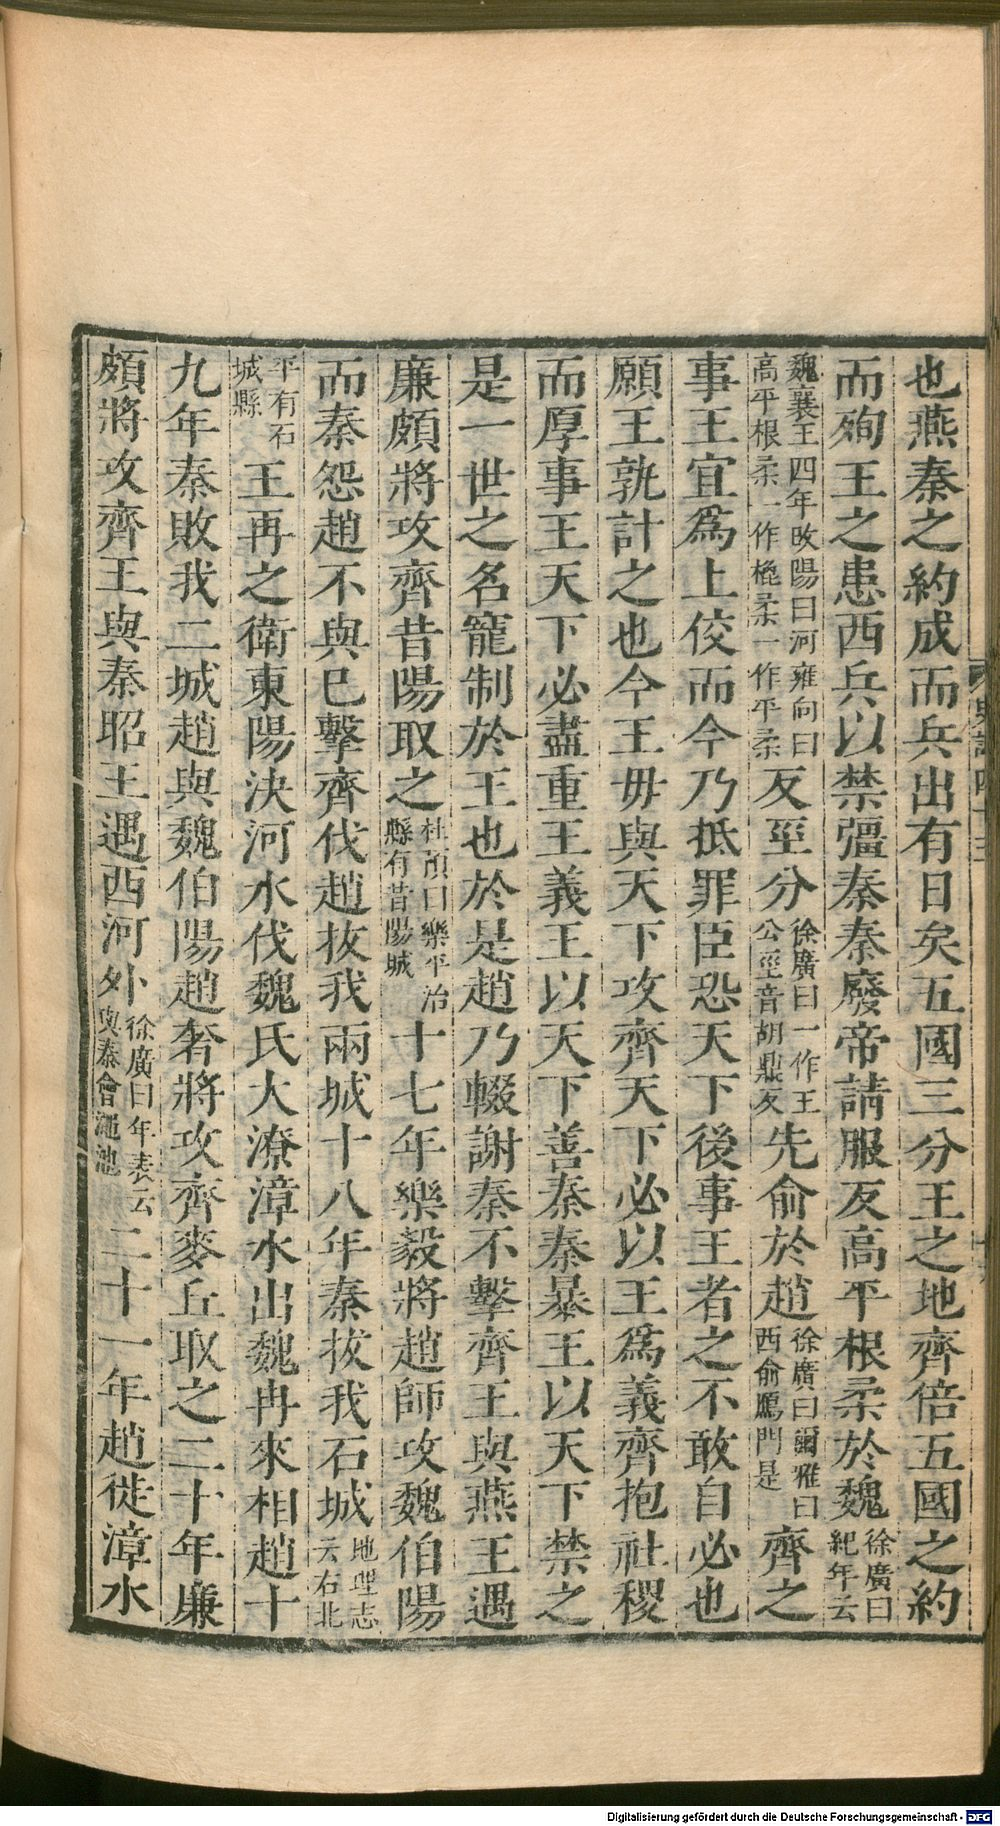 也燕秦之約成而兵出有日矣五國三分王之地齊倍五國之約
而殉王之患西兵以禁彊秦秦廢帝請服反高平根柔於魏徐廣曰紀年云
魏襄王四年改陽曰河雍向曰高平根柔一作槐柔一作平柔反坙分徐廣曰一作王公坙音胡鼎反先俞於趙徐廣曰爾雅曰西俞鴈門是齊之
事王宜爲上佼而今乃抵罪臣恐天下後事王者之不敢自必也
願王孰計之也今王毋與天下攻齊天下必以王爲義齊抱社稷
而厚事王天下必盡重王義王以天下善秦秦暴王以天下禁之
是一世之名寵制於王也於是趙乃輟謝秦不擊齊王與燕王遇
廉頗將攻齊昔陽取之杜預曰樂平沾縣有昔陽城十七年樂毅將趙師攻魏伯陽
而秦怨趙不與已擊齊伐趙拔我兩城十八年秦拔我石城地理志云右北
平有石城縣王再之衛東陽決河水伐魏氏大潦漳水出魏冉來相趙十
九年秦敗我二城趙與魏伯陽趙奢將攻齊麥丘取之二十年廉
頗將攻齊王與秦昭王遇西河外徐廣曰年表云與秦會澠池二十一年趙徙漳水
Digitalisierung gefördert durch die Deutsche Forschungsgemeinschaft - DFG